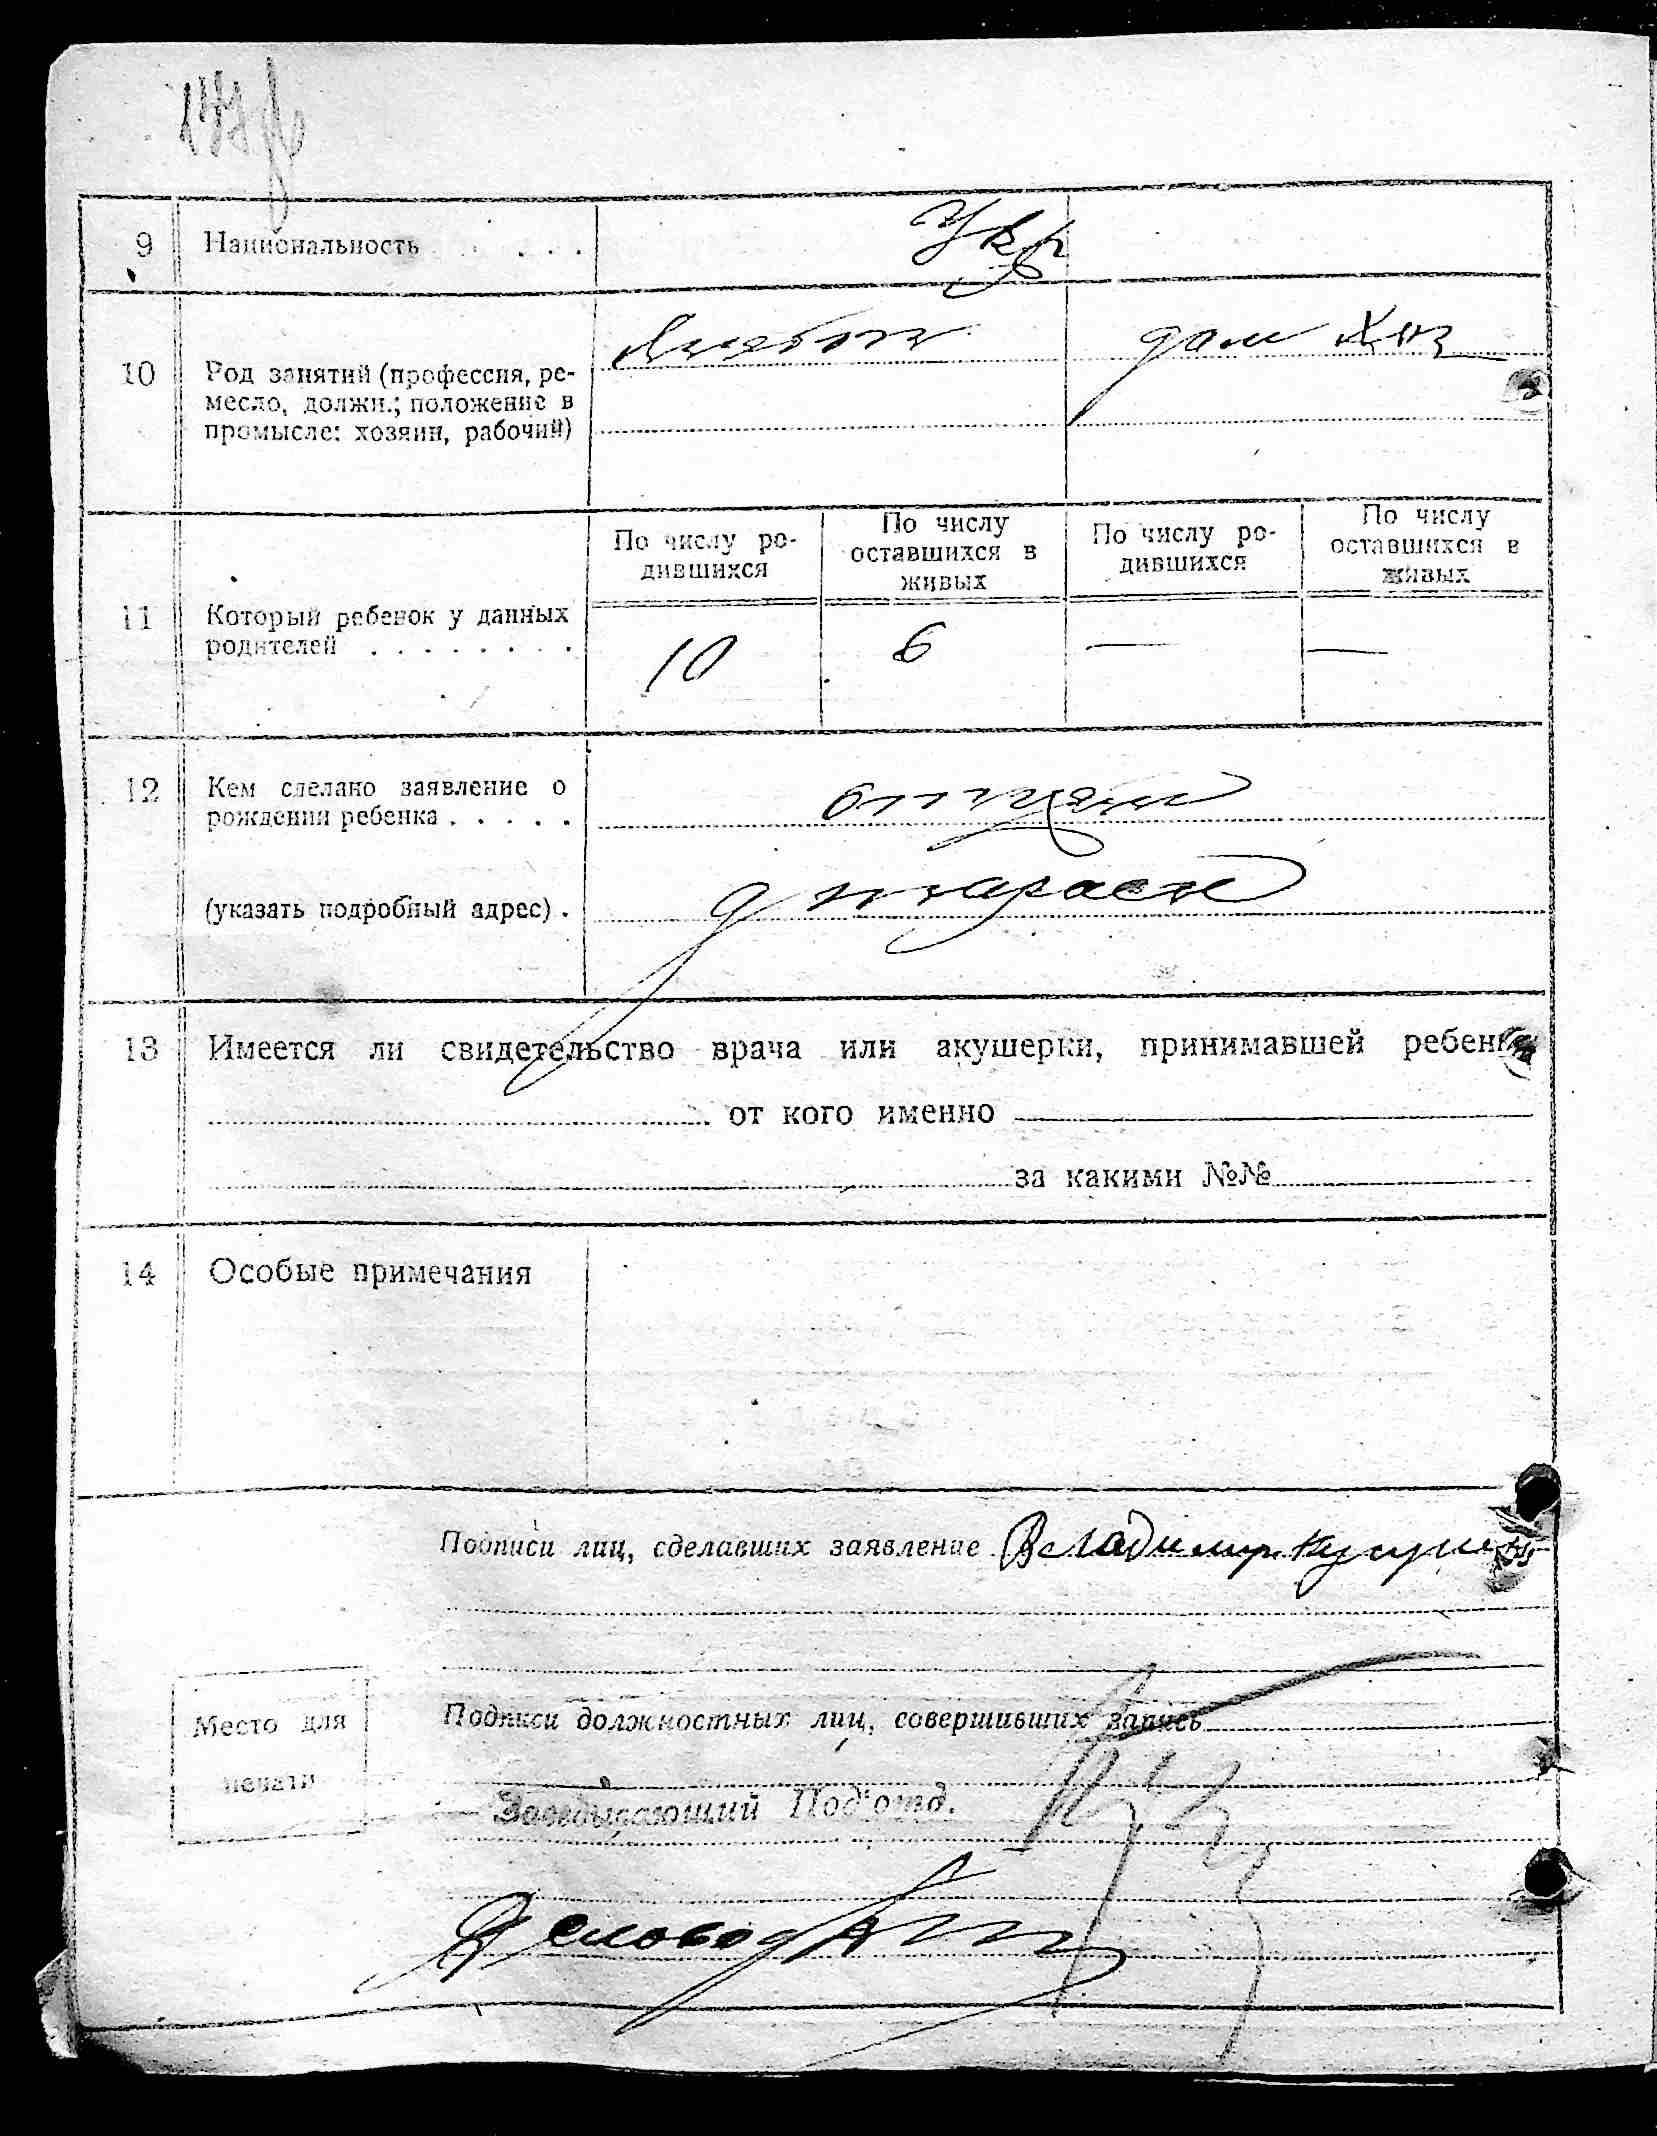 9 Национальность . . . . . Укр
10 Род занятий (профессия, ре-
месло, должн.; положение в
промысле: хозяин, рабочий)
дом хоз
По числу ро-
дившихся
По числу
оставшихся в
живых
По числу ро-
дившихся
По числу
оставшихся в
живых
11 Который ребенок у данных
родителей . . . . . . . .
10 6 — —
12 Кем сделано заявление о
рождении ребенка . . . . . отцем
(указать подробный адрес) .
13 Имеется ли свидетельство врача или акушерки, принимавшей ребенка
от кого именно
за какими №№
14 Особые примечания
Подписи лиц, сделавших заявление Владимир
Место для
печати
Подписи должностных лиц, совершивших запись
Заведывающий Под'отд.
Деловод